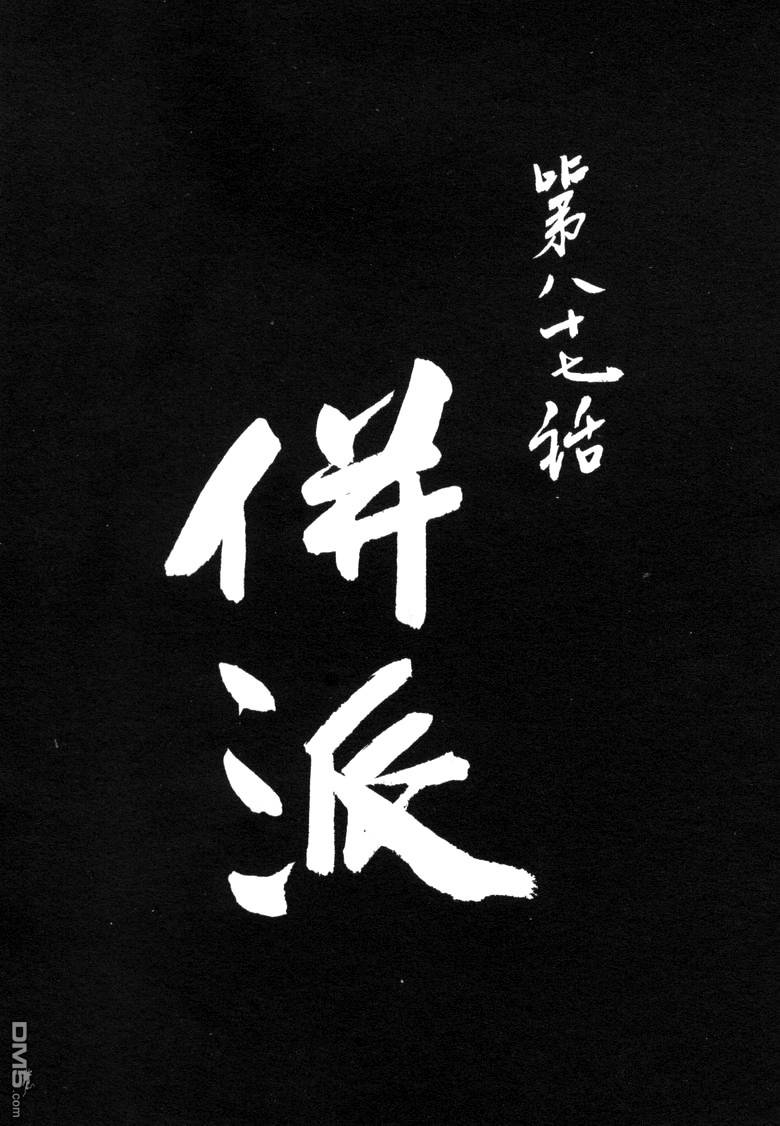 第八十七話
併派
DM5.com